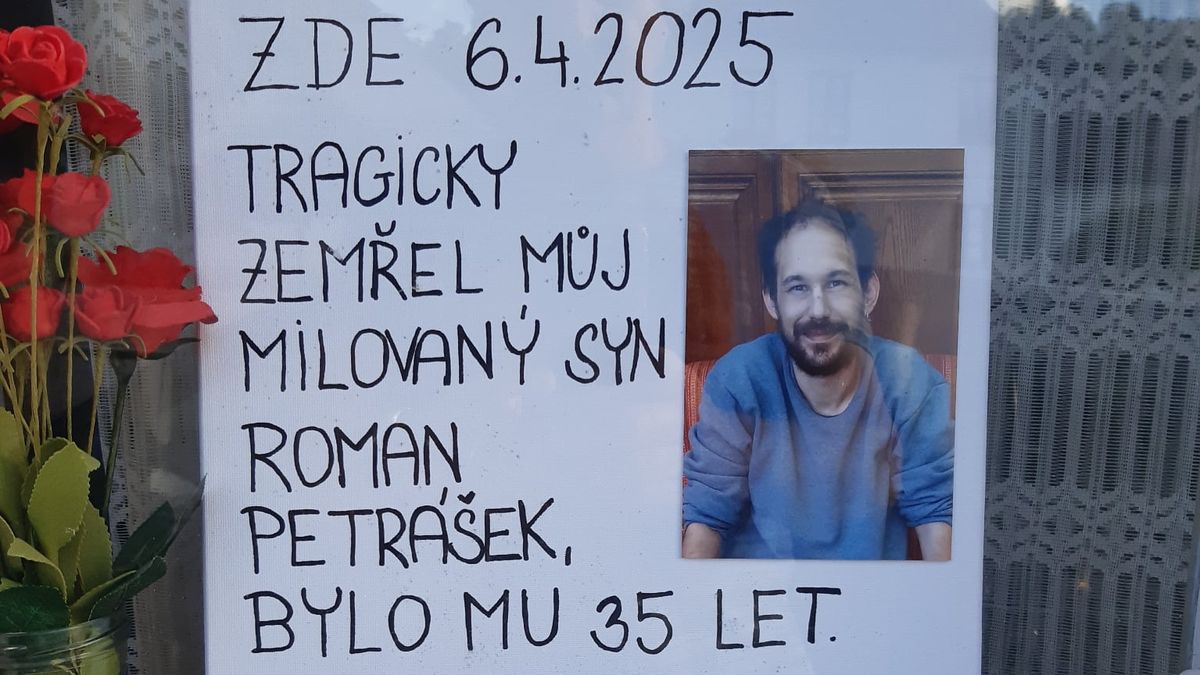 ZDE 6.4.2025
TRAGICKY
ZEMŘEL MŮJ
MILOVANÝ SYN
ROMAN
PETRÁŠEK,
BYLO MU 35 LET.